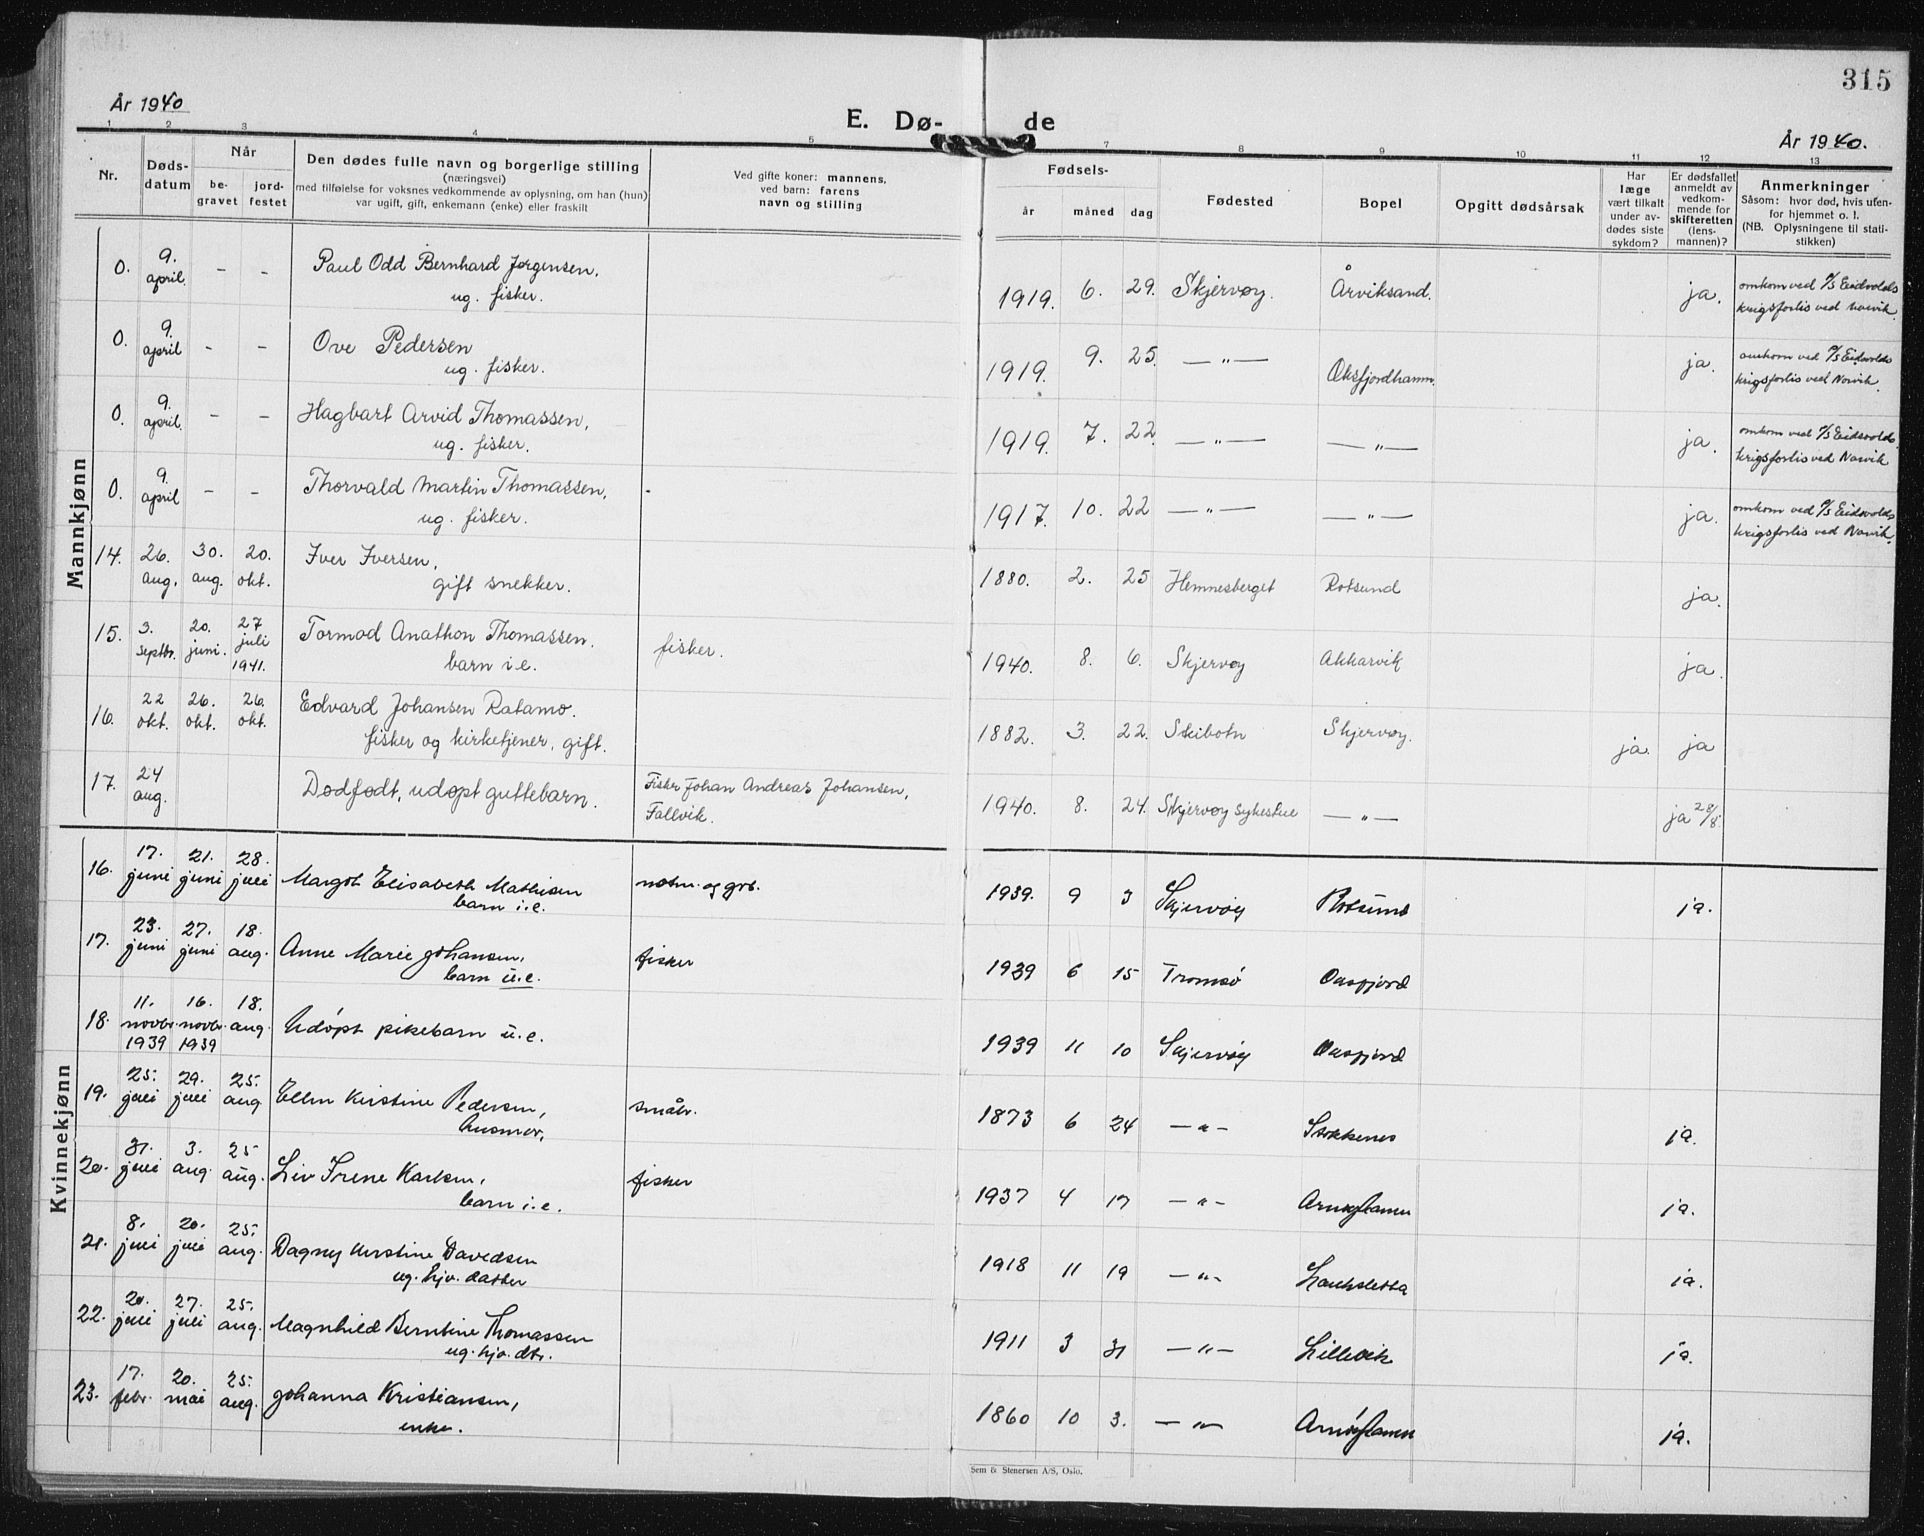 315
År 1940
E. Dø-
de
År 1940.
1 2 3 4 5 7 8 9 10 11 12 13
Nr.
Døds-
datum
Når
be-
gravet
jord-
festet
Den dødes fulle navn og borgerlige stilling
(næringsvei)
med tilføielse for voksnes vedkommende av oplysning, om han (hun)
var ugift, gift, enkemann (enke) eller fraskilt
Ved gifte koner: mannens,
ved barn: farens
navn og stilling
Fødsels-
år måned dag
Fødested
Bopel
Opgitt dødsårsak
Har
læge
vært tilkalt
under av-
dødes siste
sykdom?
Er dødsfallet
anmeldt av
vedkom-
mende for
skifteretten
(lens-
mannen)?
Anmerkninger
Såsom: hvor død, hvis uten-
for hjemmet o. l.
(NB. Oplysningene til stati-
stikken)
Mannkjønn
0. 9. april - - Paul Odd Bernhard Jørgensen, 1919. 6. 29. Skjervøy. Årviksand. ja. omkom ved P/S Eidsvolds
ug. fisker. krigsforlis ved Narvik.
0. 9. april - - Ove Pedersen 1919. 9. 25. —„— Oksfjordhamn. ja. omkom ved P/S Eidsvolds
ug. fisker. krigsforlis ved Narvik.
0. 9. april. - - Hagbart Arvid Thomassen, 1919. 7. 22. —„— —„— ja. omkom ved P/S Eidsvolds
ug. fisker. krigsforlis ved Narvik
0. 9. april - - Thorvald Martin Thomassen, 1917. 10. 22 —„— —„— ja. omkom ved P/S Eidsvolds
ug. fisker. krigsforlis ved Narvik.
14. 26. aug. 30. aug. 20. okt. Iver Iversen, 1880. 2. 25 Hemnesberget Rotsund ja.
gift snekker.
15. 3. septbr. 20. juni. 27 juli 1941. Tormod Anathon Thomassen. fisker. 1940. 8. 6. Skjervøy Akkarvik ja.
barn i.e.
16. 22 okt. 26. okt. 26. okt. Edvard Johansen Ratamo. 1882. 3. 22. Skibotn Skjervøy. ja. ja
fisker og kirketjener, gift.
17. 24 aug. Dødfødt, udøpt guttebarn. Fisker Johan Andreas Johansen, 1940. 8. 24. Skjervøy sykestue —„— ja 28/8.
Fallvik.
Kvinnekjønn
16. 17. juni 21. juni 28. juli Margot Elisabeth Mathisen notm. og grb. 1939. 9 3 Skjervøy Rotsund ja.
barn i.e.
17. 23. juni 27. juni 18. aug. Anne Marie Johansen, fisker 1939 6 15 Tromsø Oksfjord
barn u.e.
18. 11. novbr. 1939 16. novbr. 1939 18. aug. Udøpt pikebarn u.e. 1939 11 10 Skjervøy Oksfjord
19. 25. juli 29. juli 25. aug. Ellen Kirstine Pedersen, småbr. 1873 6 24 —„— Stokkenes ja.
husmor,
20. 31. juli 3. aug. 25 aug. Liv Irene Karlsen, fisker 1937 4 17 —„— Arnøyhamn ja.
barn i.e.
21. 8. juli 20. juli 25. aug. Dagny Kirstine Davidsen 1918 11 19 —„— Lauksletta ja.
ug. hjv. datter
22. 20. juli 27. juli 25. aug. Magnhild Berntine Thomassen 1911 3 31 —„— Lillevik ja.
ug. hjv. dtr.
23. 17. febr. 20. mai 25. aug. Johanna Kristiansen, 1860 10 3. —„— Arnøyhamn ja.
enke.
Sem & Stenersen A/S, Oslo.